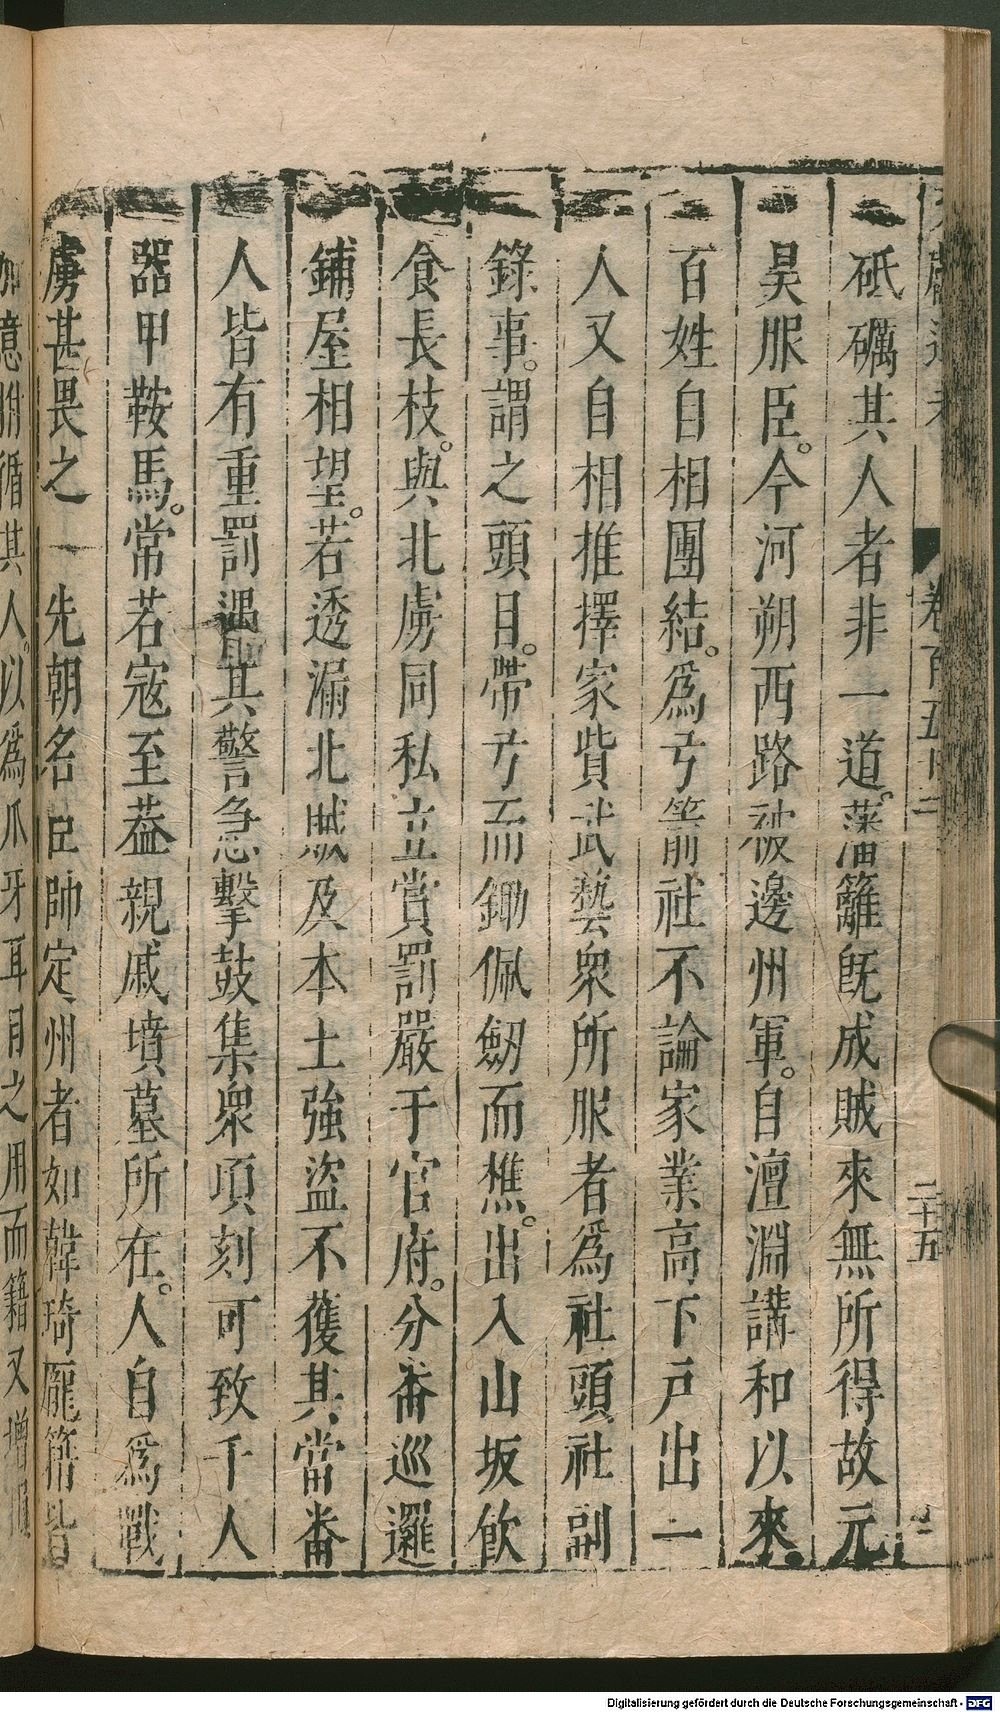 文獻通考 卷百五十三 二十五
砥礪其人者非一道藩籬既成賊來無所得故元
昊服臣今河朔西路被邊州軍自澶淵講和以來
百姓自相團結爲弓箭社不論家業高下戶出一
人又自相推擇家貲武藝衆所服者爲社頭社副
錄事謂之頭目帶弓而鋤佩劒而樵出入山坂飲
食長技與北虜同私立賞罰嚴于官府分畨巡邏
鋪屋相望若透漏北賊及本土強盜不獲其當畨
人皆有重罰遇其警急擊鼓集衆頃刻可致千人
器甲鞍馬常若寇至葢親戚墳墓所在人自爲戰
虜甚畏之 先朝名臣帥定州者如韓琦龐籍皆
加意拊循其人以爲爪牙耳目之用而籍又增損
Digitalisierung gefördert durch die Deutsche Forschungsgemeinschaft - DFG